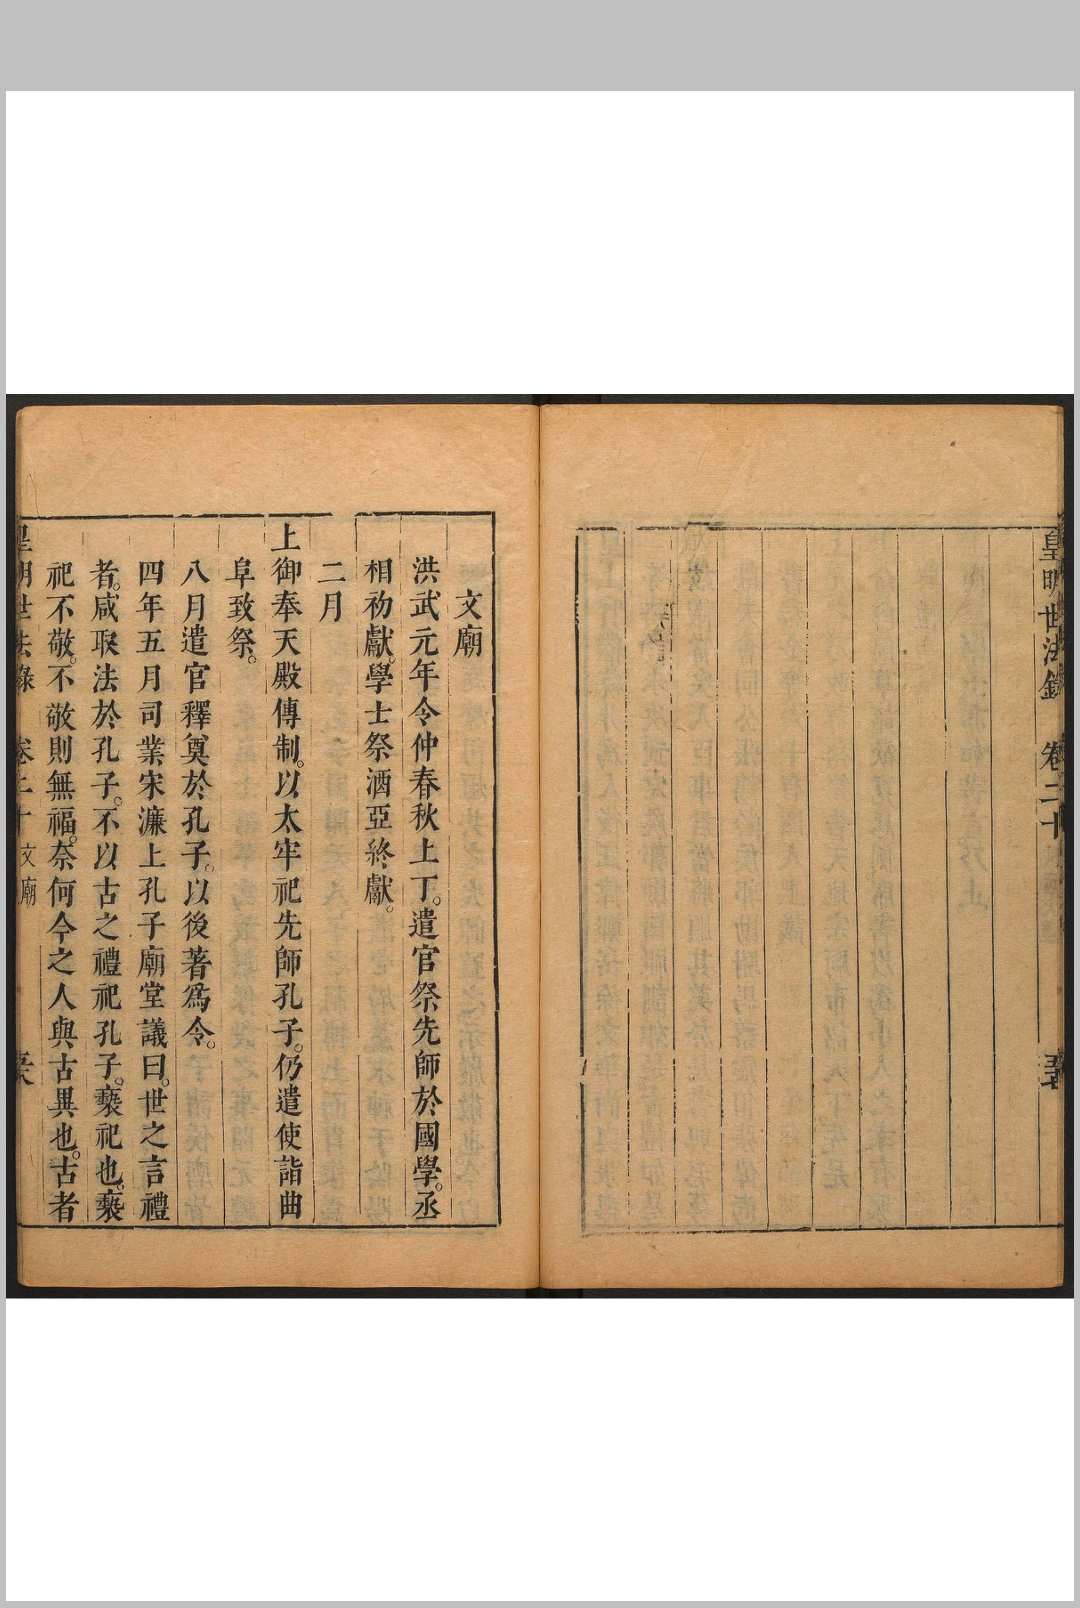 皇明世法錄 卷二十
文廟
洪武元年令仲春秋上丁。遣官祭先師於國學。丞
相初獻。學士祭酒亞終獻。
二月
上御奉天殿傳制。以太牢祀先師孔子。仍遣使詣曲
阜致祭。
八月遣官釋奠於孔子。以後著爲令。
四年五月司業宋濂上孔子廟堂議曰。世之言禮
者。咸取法於孔子。不以古之禮祀孔子。褻祀也。褻
祀不敬。不敬則無福。奈何今之人與古異也。古者
皇明世法錄 卷二十 文廟